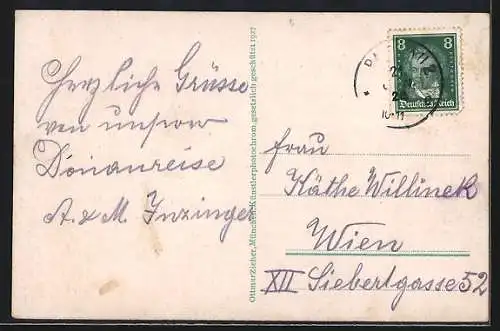 Herzliche Grüsse
von unserer
Donaureise
A. & M. Inzinger
Ottmar Zieher, München. Künstlerphotochrom, gesetzlich geschützt 1927
8 8
Deutsches Reich
10-11
Frau
Käthe Willinek
Wien
XII Siebertgasse 52